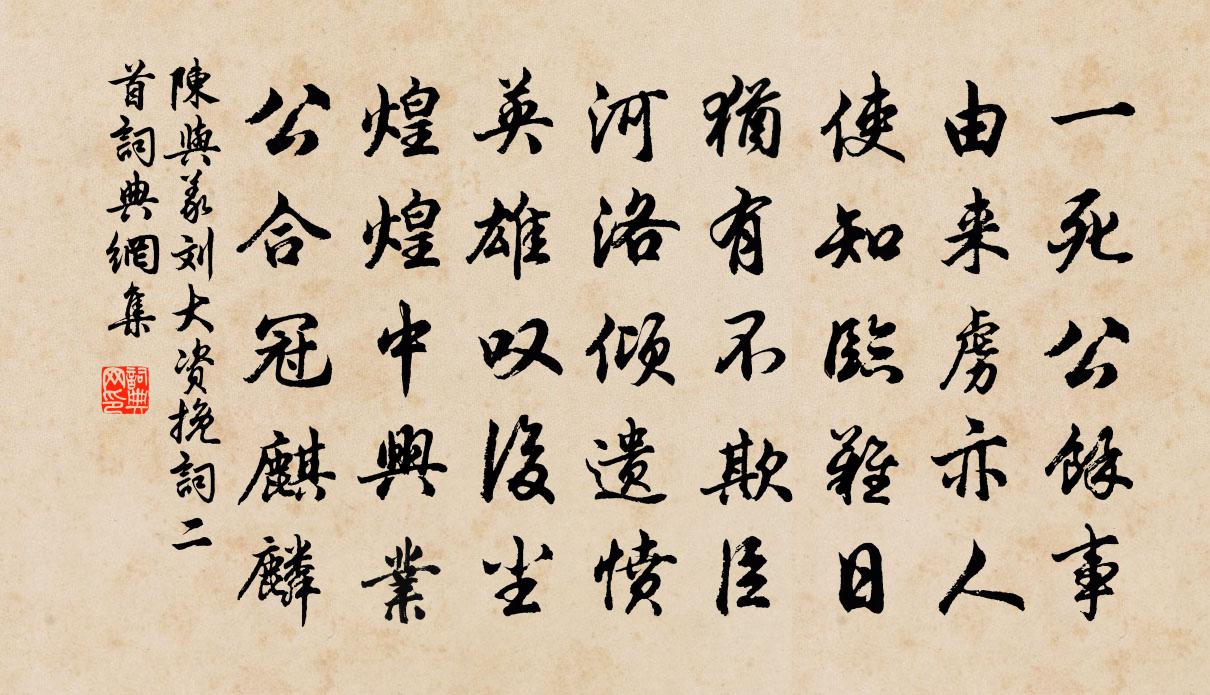 一死公餘事
由来虜亦人
使知臨難日
猶有不欺臣
河洛傾遗憤
英雄叹後尘
煌煌中興業
公合冠麒麟
陳與義刘大资挽词二
首詞典網集
詞典网印